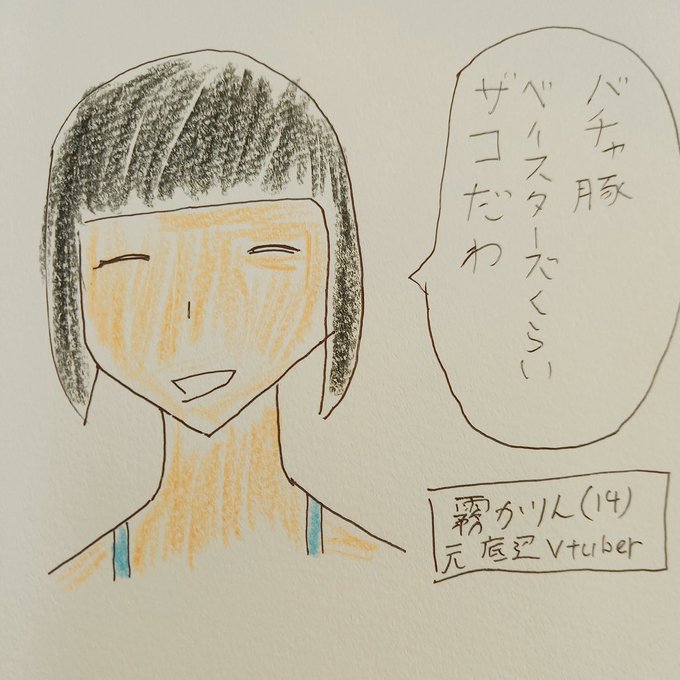 バチャ豚
ベイスターズくらい
ザコだわ
霧かりん(14)
元底辺Vtuber